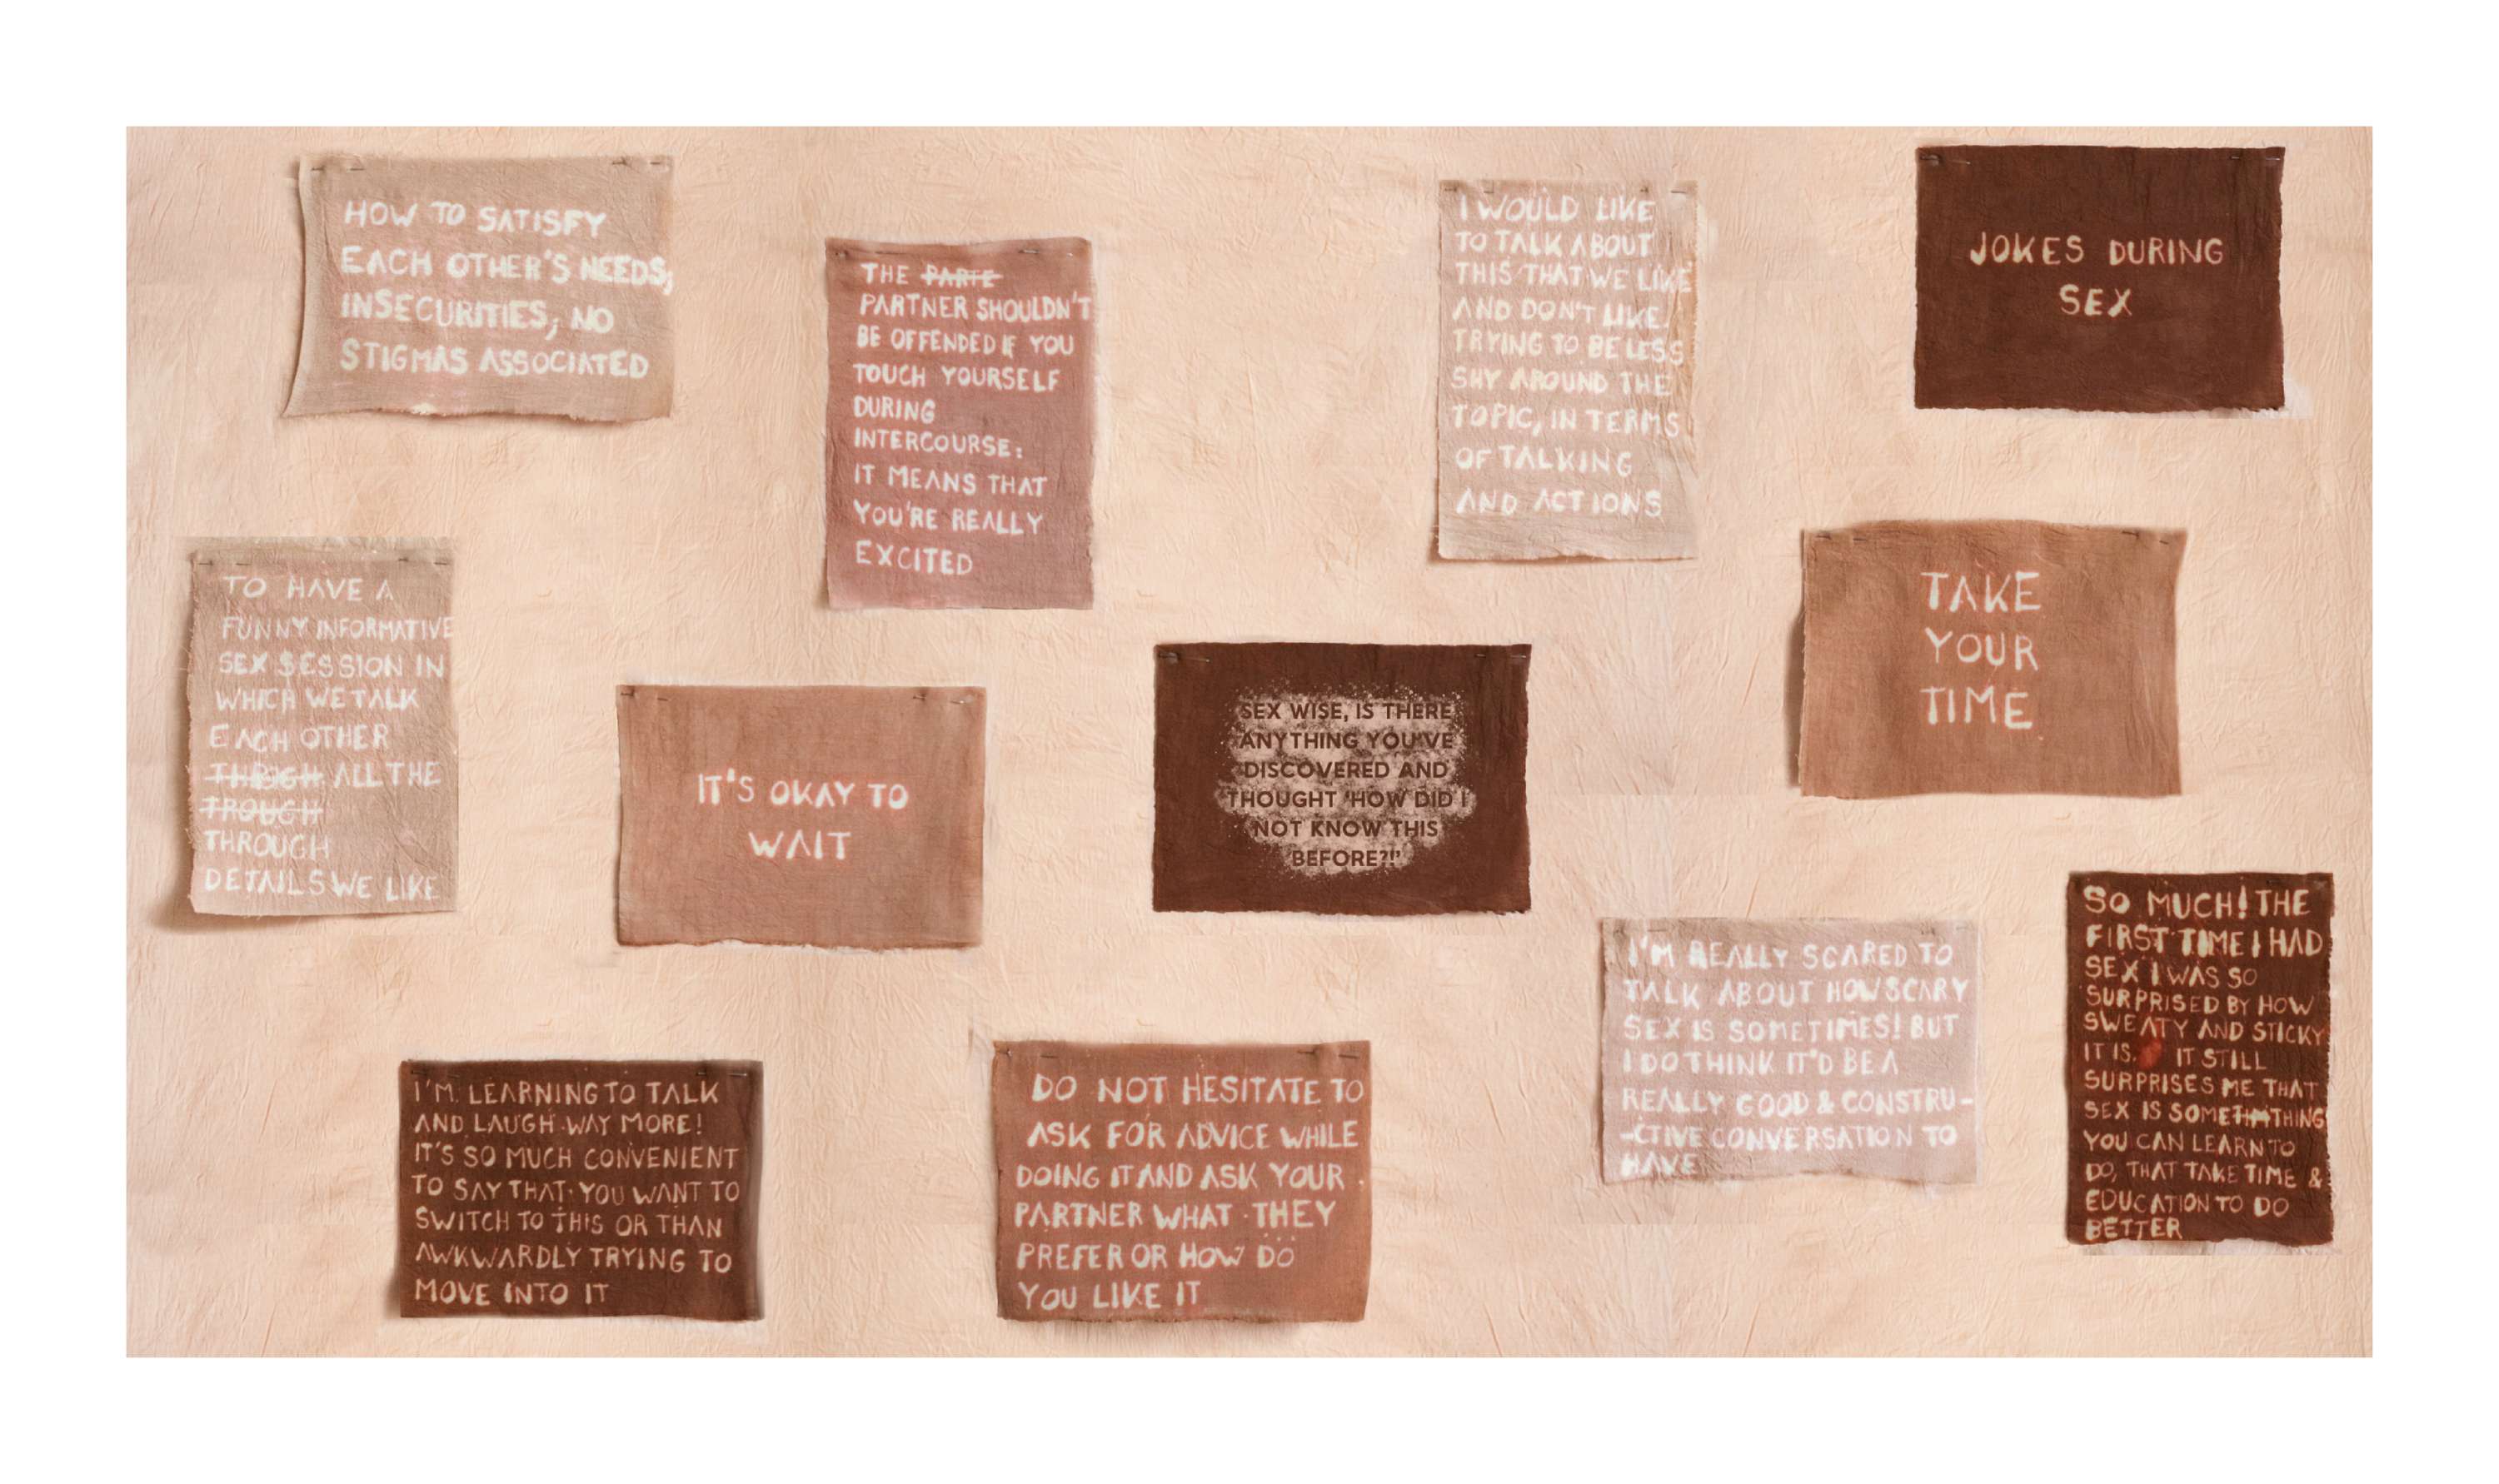 HOW TO SATISFY
EACH OTHER'S NEEDS,
INSECURITIES, NO
STIGMAS ASSOCIATED
THE PARTE
PARTNER SHOULDN'T
BE OFFENDED IF YOU
TOUCH YOURSELF
DURING
INTERCOURSE:
IT MEANS THAT
YOU'RE REALLY
EXCITED
I WOULD LIKE
TO TALK ABOUT
THIS THAT WE LIKE
AND DON'T LIKE.
TRYING TO BE LESS
SHY AROUND THE
TOPIC, IN TERMS
OF TALKING
AND ACTIONS
JOKES DURING
SEX
TO HAVE A
FUNNY INFORMATIVE
SEX SESSION IN
WHICH WE TALK
EACH OTHER
ALL THE
TROUGH
THROUGH
DETAILS WE LIKE
IT'S OKAY TO
WAIT
SEX WISE, IS THERE
ANYTHING YOU'VE
DISCOVERED AND
THOUGHT 'HOW DID I
NOT KNOW THIS
BEFORE?!'
TAKE
YOUR
TIME
I'M LEARNING TO TALK
AND LAUGH WAY MORE!
IT'S SO MUCH CONVENIENT
TO SAY THAT YOU WANT TO
SWITCH TO THIS OR THAN
AWKWARDLY TRYING TO
MOVE INTO IT
DO NOT HESITATE TO
ASK FOR ADVICE WHILE
DOING IT AND ASK YOUR
PARTNER WHAT THEY
PREFER OR HOW DO
YOU LIKE IT
I'M REALLY SCARED TO
TALK ABOUT HOW SCARY
SEX IS SOMETIMES! BUT
I DO THINK IT'D BE A
REALLY GOOD & CONSTRU-
-CTIVE CONVERSATION TO
HAVE
SO MUCH! THE
FIRST TIME I HAD
SEX I WAS SO
SURPRISED BY HOW
SWEATY AND STICKY
IT IS. IT STILL
SURPRISES ME THAT
SEX IS SOMETHING
YOU CAN LEARN TO
DO, THAT TAKE TIME &
EDUCATION TO DO
BETTER